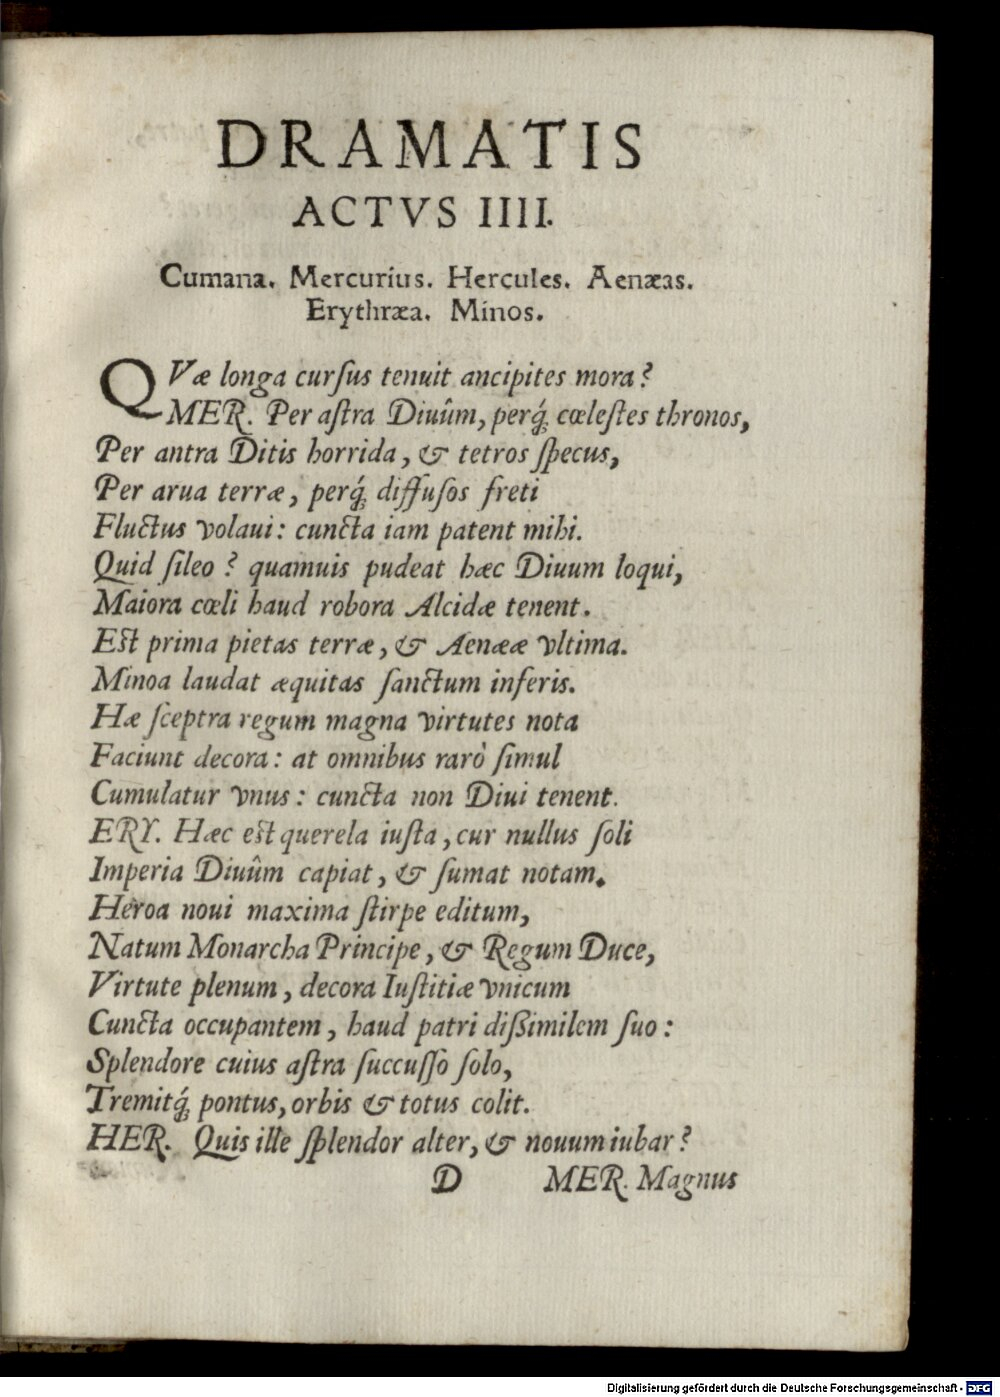 DRAMATIS
ACTVS IIII.
Cumana. Mercurius. Hercules. Aenæas.
Erythræa. Minos.
QVæ longa curſus tenuit ancipites mora?
MER. Per aſtra Diuûm, perq́ꝫ cœleſtes thronos,
Per antra Ditis horrida, & tetros ſpecus,
Per arua terræ, perq́ꝫ diffuſos freti
Fluctus volaui: cuncta iam patent mihi.
Quid ſileo? quamuis pudeat hæc Diuum loqui,
Maiora cœli haud robora Alcidæ tenent.
Est prima pietas terræ, & Aenææ vltima.
Minoa laudat æquitas ſanctum inferis.
Hæ ſceptra regum magna virtutes nota
Faciunt decora: at omnibus rarò ſimul
Cumulatur vnus: cuncta non Diui tenent.
ERY. Hæc est querela iusta, cur nullus ſoli
Imperia Diuûm capiat, & ſumat notam.
Heroa noui maxima ſtirpe editum,
Natum Monarcha Principe, & Regum Duce,
Virtute plenum, decora Iuſtitiæ vnicum
Cuncta occupantem, haud patri dißimilem ſuo:
Splendore cuius aſtra ſuccuſſo ſolo,
Tremitq́ꝫ pontus, orbis & totus colit.
HER. Quis ille ſplendor alter, & nouum iubar?
D MER. Magnus
Digitalisierung gefördert durch die Deutsche Forschungsgemeinschaft - DFG